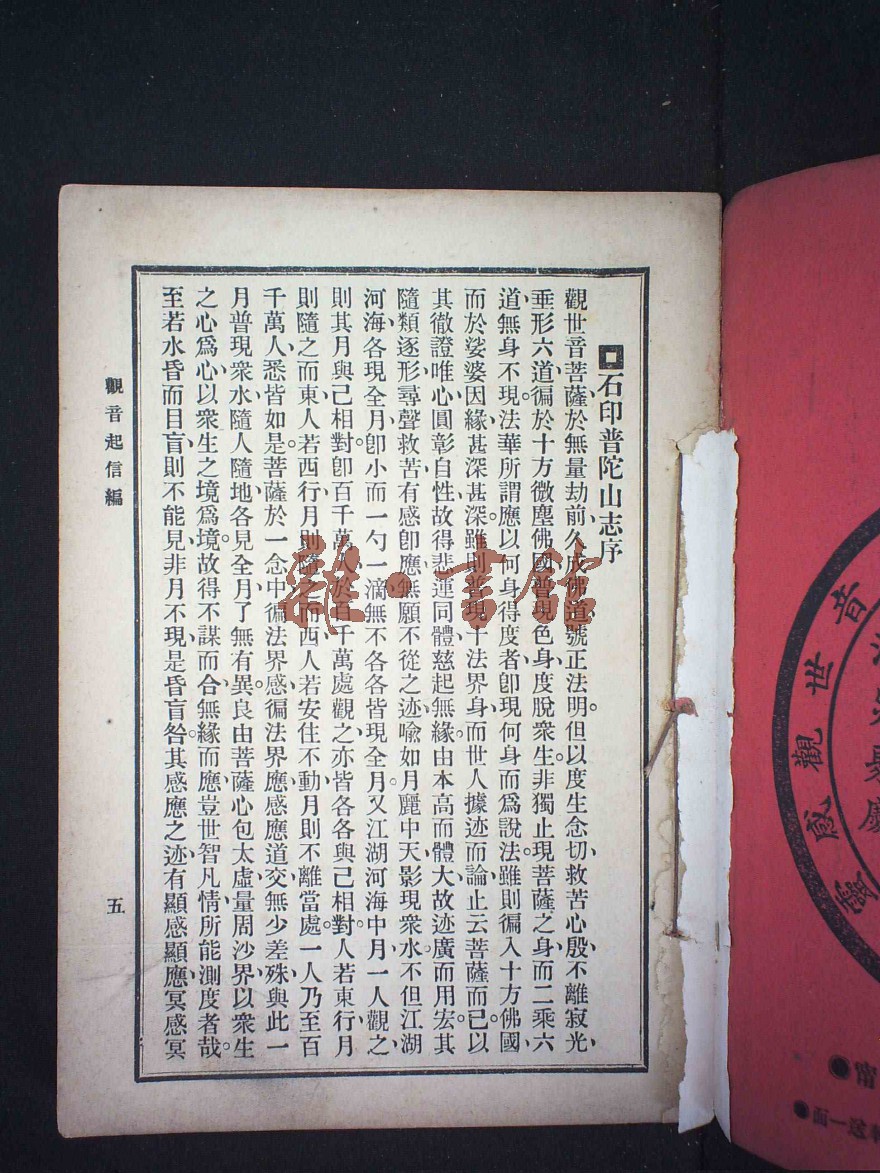 石印普陀山志序
觀世音菩薩於無量劫前、久成佛道、號正法明。但以度生念切、救苦心殷、不離寂光、
垂形六道、徧於十方微塵佛國、普現色身、度脫衆生。非獨止現菩薩之身、而二乘六
道、無身不現。法華所謂應以何身得度者、卽現何身而爲說法。雖則徧入十方佛國、
而於娑婆因緣甚深甚深。雖則普現十法界身、而世人據迹而論、止云菩薩而已。以
其徹證唯心、圓彰自性、故得悲運同體、慈起無緣。由本高而體大、故迹廣而用宏。其
隨類逐形、尋聲救苦、有感卽應、無願不從之迹、喩如月麗中天、影現衆水、不但江湖
河海各現全月、卽小而一勺一滴、無不各各皆現全月。又江湖河海中月、一人觀之、
則其月與己相對、卽百千萬人、於百千萬處觀之、亦皆各各與己相對。人若東行、月
則隨之而東、人若西行、月則隨之而西、人若安住不動、月則不離當處。一人乃至百
千萬人、悉皆如是。菩薩於一念中、徧法界感、徧法界應、感應道交、無少差殊、與此一
月普現衆水、隨人隨地各見全月、了無有異。良由菩薩心包太虛、量周沙界、以衆生
之心爲心、以衆生之境爲境。故得不謀而合、無緣而應、豈世智凡情所能測度者哉。
至若水昏而目盲、則不能見、非月不現、是昏盲咎。其感應之迹、有顯感顯應、冥感冥
觀音起信編
五
雜·書館
音世觀感
甯
面一送